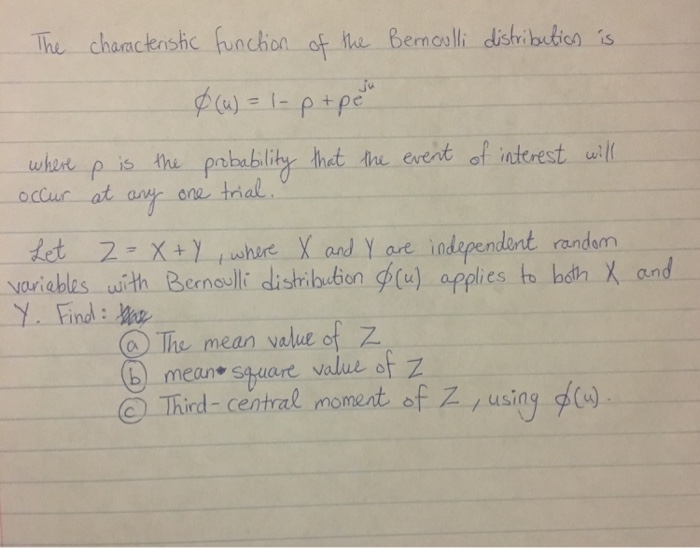 The characteristic function of the Bernoulli distribution is
ϕ(u) = 1- p + pe^ju
where p is the probability that the event of interest will
occur at any one trial.
Let Z = X + Y , where X and Y are independent random
variables with Bernoulli distribution ϕ(u) applies to both X and
Y. Find:
(a) The mean value of Z
(b) mean square value of Z
(c) Third-central moment of Z, using ϕ(u).